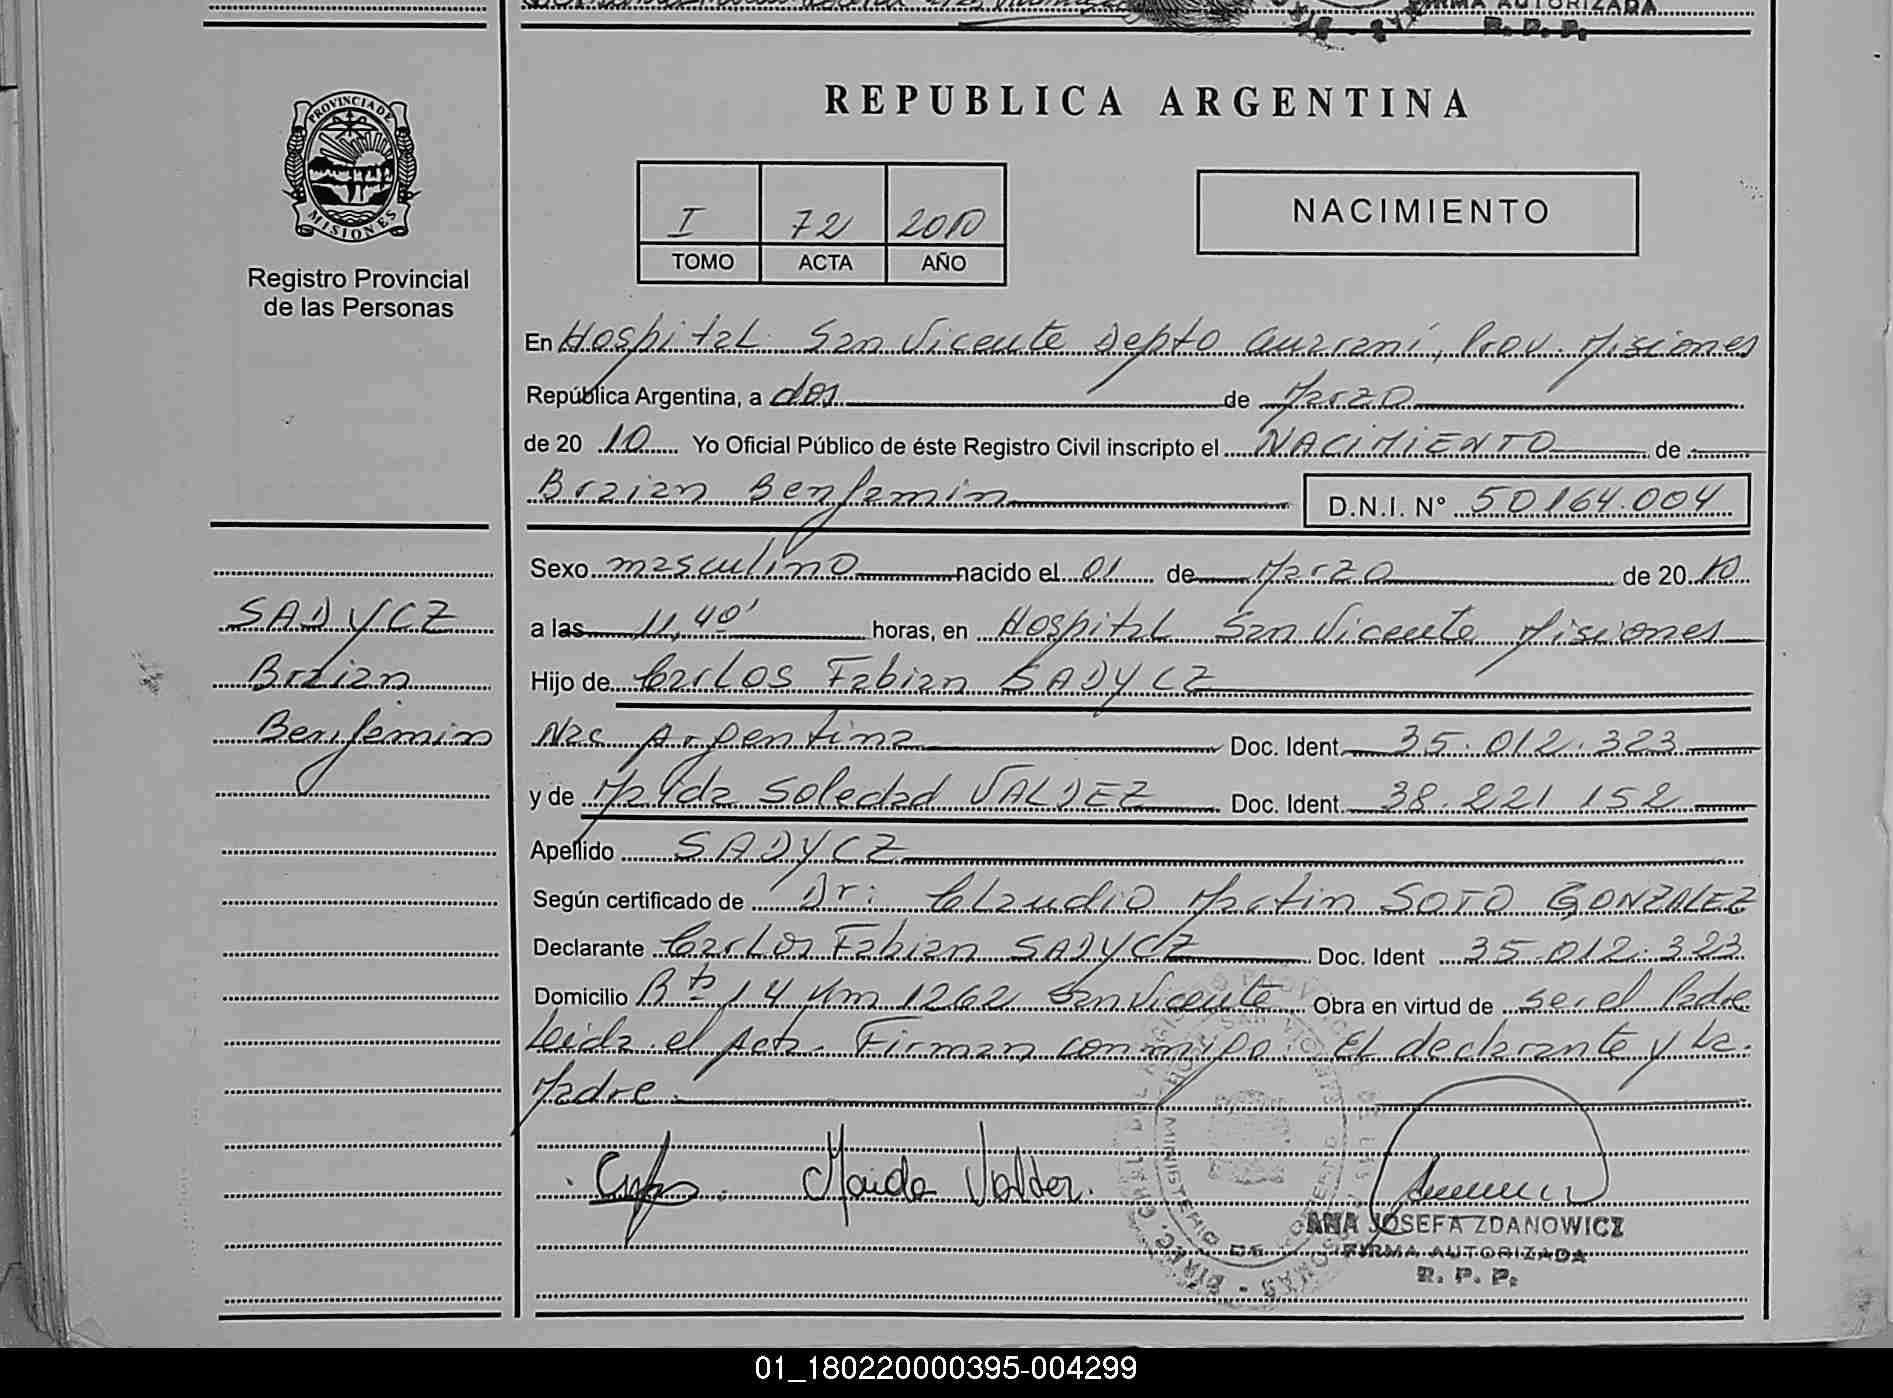 FIRMA AUTORIZADA
R. P. P.
PROVINCIA DE
MISIONES
Registro Provincial
de las Personas
SADYCZ
Braian
Benjamin
REPUBLICA ARGENTINA
I 72 2010
TOMO ACTA AÑO
NACIMIENTO
En Hospital San Vicente Depto Guarani, Prov. Misiones
República Argentina, a dos de Marzo
de 20 10 Yo Oficial Público de éste Registro Civil inscripto el NACIMIENTO de
Braian Benjamin D.N.I. Nº 50164.004
Sexo masculino nacido el 01 de Marzo de 20 10
a las 11,40' horas, en Hospital San Vicente Misiones
Hijo de Carlos Fabian SADYCZ
Nac Argentina Doc. Ident. 35.012.323
y de Maida Soledad VALDEZ Doc. Ident. 38.221 152
Apellido SADYCZ
Según certificado de Dr: Claudio Martin SOTO GONZALEZ
Declarante Carlos Fabian SADYCZ Doc. Ident 35.012.323
Domicilio Rta 14 Km 1262 San Vicente Obra en virtud de ser el Padre
Leida el Acta. Firman conmigo El declarante y La
Madre.
Maida Valdez.
ANA JOSEFA ZDANOWICZ
FIRMA AUTORIZADA
R. P. P.
MINISTERIO DE GOBIERNO
01_180220000395-004299